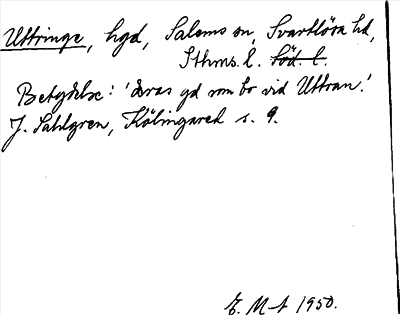 Uttringe, hgd, Salems sn, Svartlösa hd,
Sthms. l. Söd. l.
Betydelse: 'deras gd som bo vid Uttran.'
J. Sahlgren, Kölingared s. 9.
E. M-t 1950.